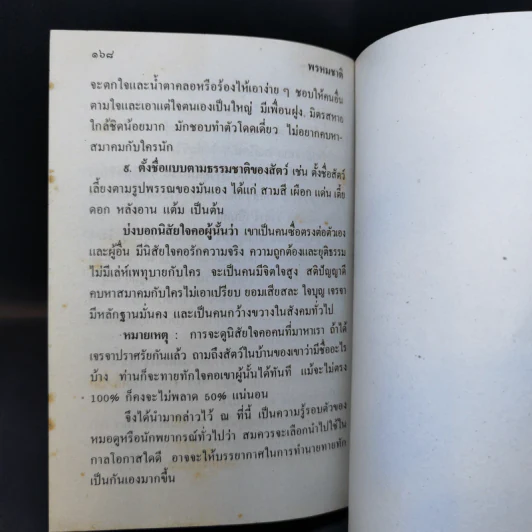 ๑๖๘
พรหมชาติ
จะตกใจและน้ำตาคลอหรือร้องไห้เอาง่าย ๆ ชอบให้คนอื่น
ตามใจและเอาแต่ใจตนเองเป็นใหญ่ มีเพื่อนฝูง, มิตรสหาย
ใกล้ชิดน้อยมาก มักชอบทำตัวโดดเดี่ยว ไม่อยากคบหา-
สมาคมกับใครนัก
๕. ตั้งชื่อแบบตามธรรมชาติของสัตว์ เช่น ตั้งชื่อสัตว์
เลี้ยงตามรูปพรรณของมันเอง ได้แก่ สามสี เผือก แด่น เตี้ย
ดอก หลังอาน แต้ม เป็นต้น
บ่งบอกนิสัยใจคอผู้นั้นว่า เขาเป็นคนซื่อตรงต่อตัวเอง
และผู้อื่น มีนิสัยใจคอรักความจริง ความถูกต้องและยุติธรรม
ไม่มีเล่ห์เพทุบายกับใคร จะเป็นคนมีจิตใจสูง สติปัญญาดี
คบหาสมาคมกับใครไม่เอาเปรียบ ยอมเสียสละ ใจบุญ เจรจา
มีหลักฐานมั่นคง และเป็นคนกว้างขวางในสังคมทั่วไป
หมายเหตุ : การจะดูนิสัยใจคอคนที่มาหาเรา ถ้าได้
เจรจาปราศรัยกันแล้ว ถามถึงสัตว์ในบ้านของเขาว่ามีชื่ออะไร
บ้าง ท่านก็จะทายทักใจคอเขาผู้นั้นได้ทันที แม้จะไม่ตรง
100% ก็คงจะไม่พลาด 50% แน่นอน
จึงได้นำมากล่าวไว้ ณ ที่นี้ เป็นความรู้รอบตัวของ
หมอดูหรือนักพยากรณ์ทั่วไปว่า สมควรจะเลือกนำไปใช้ใน
กาลโอกาสใดดี อาจจะให้บรรยากาศในการทำนายทายทัก
เป็นกันเองมากขึ้น